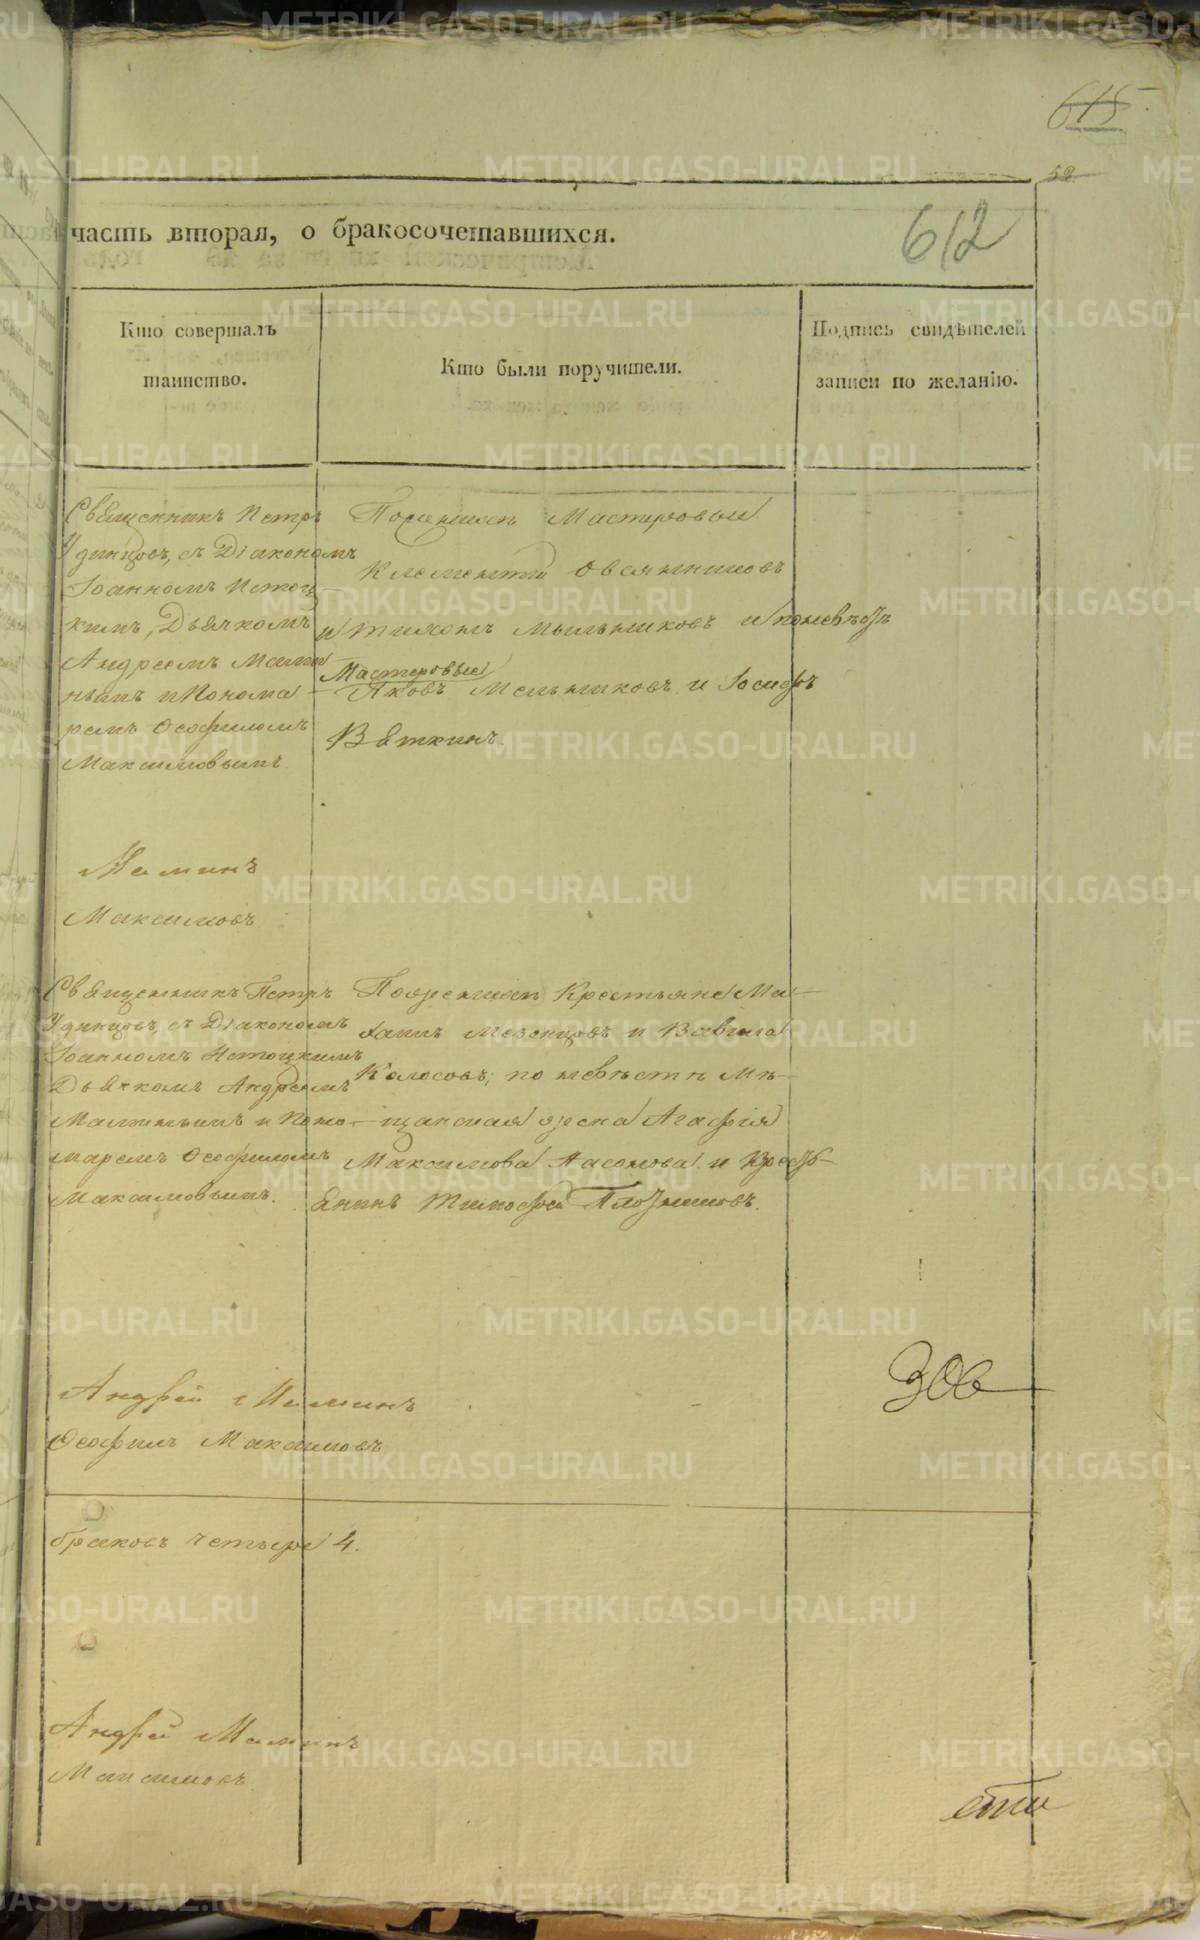 615
52
часть вторая, о бракосочетавшихся.
612
Кто совершалъ
таинство.
Кто были поручители.
Подпись свидѣтелей
записи по желанію.
Священникъ Петръ
Удинцовъ, съ Діакономъ
Іоанномъ Истоц
кимъ, Дьячкомъ
Андреемъ Мами
нымъ и Понома
ремъ Ѳеофиломъ
Максимовымъ.
По женихѣ Мастеровыи
Клементій Овсянниковъ
и Тихонъ Мыльниковъ и по невѣстѣ
Мастеровые
Яковъ Мельниковъ и Іосифъ
Вяткинъ.
Маминъ
Максимовъ
Священникъ Петръ
Удинцовъ, съ Діакономъ
Іоанномъ Истоцкимъ
Дьячкомъ Андреемъ
Маминымъ и Поно
маремъ Ѳеофиломъ
Максимовымъ.
По женихѣ Крестьяне
Мезенцовъ и Вавила
Колосовъ, по невѣстѣ Мѣ
щанская жена Агафія
Максимова и Кресть
янинъ Тимофей Плотниковъ.
Андрей Маминъ
Ѳеофилъ Максимовъ
браковъ четыре 4.
Андрей Маминъ
Максимовъ.
METRIKI.GASO-URAL.RU